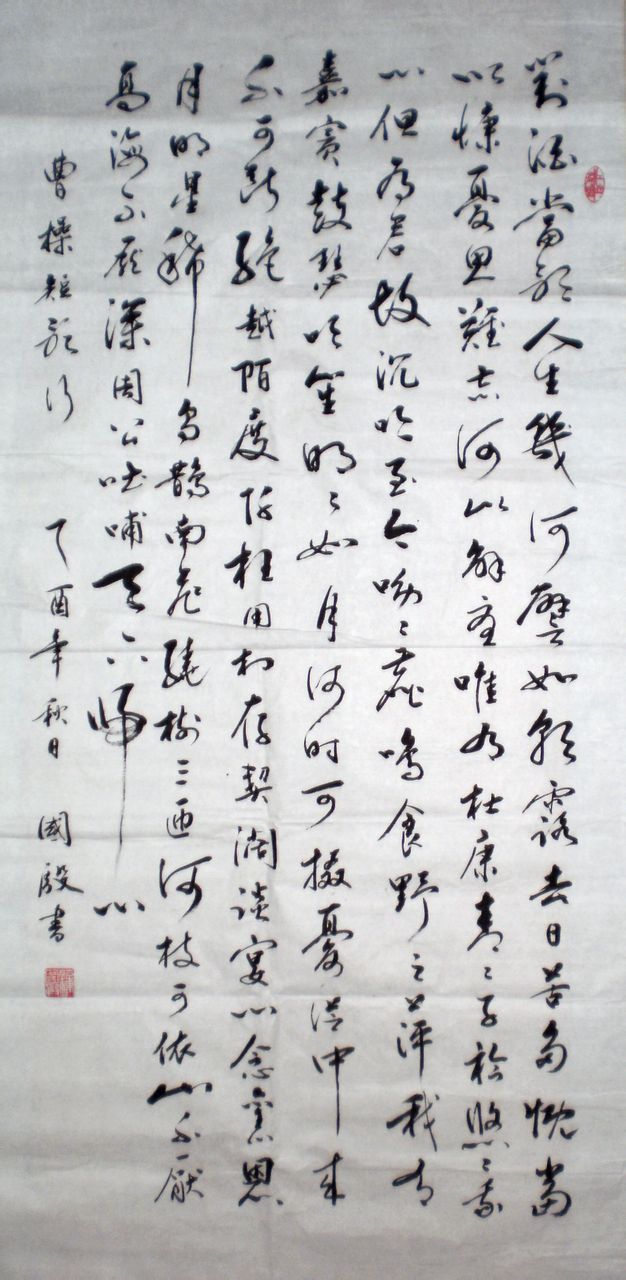 對酒當歌人生幾何譬如朝露去日苦多慨當
以慷憂思難忘何以解憂唯有杜康青〻子衿悠〻我
心但為君故沉吟至今呦〻鹿鳴食野之萍我有
嘉賓鼓瑟吹笙明〻如月何时可掇憂從中來
不可斷絕越陌度阡枉用相存契闊談宴心念舊恩
月明星稀烏鵲南飛繞樹三匝何枝可依山不厭
高海不厭深周公吐哺天下歸心
曹操短歌行 乙酉年秋日 國殷書